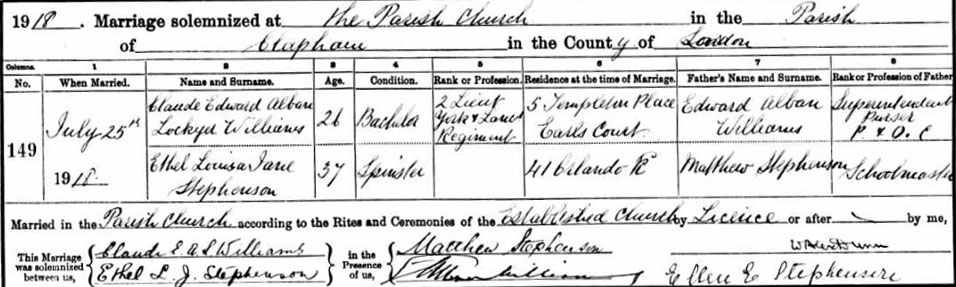 1918. Marriage solemnized at the Parish Church in the Parish
of Clapham in the County of London
Columns. 1 2 3 4 5 6 7 8
No. When Married. Name and Surname. Age. Condition. Rank or Profession. Residence at the time of Marriage. Father's Name and Surname. Rank or Profession of Father
149
July 25th
1918.
Claude Edward Alban
Lockyer Williams
26
Bachelor
2 Lieut
York & Lancs
Regiment
5 Templeton Place
Earls Court
Edward Alban
Williams
Superintendent
Purser
P & O. C
Ethel Louisa Jane
Stephenson
37
Spinster
41 Orlando Rd
Matthew Stephenson
Schoolmaster
Married in the Parish Church according to the Rites and Ceremonies of the Established Church by Licence or after by me,
This Marriage
was solemnized
between us,
Claude E A L Williams
Ethel L. J. Stephenson
in the
Presence
of us,
Matthew Stephenson
Williams
Ellen E Stephenson